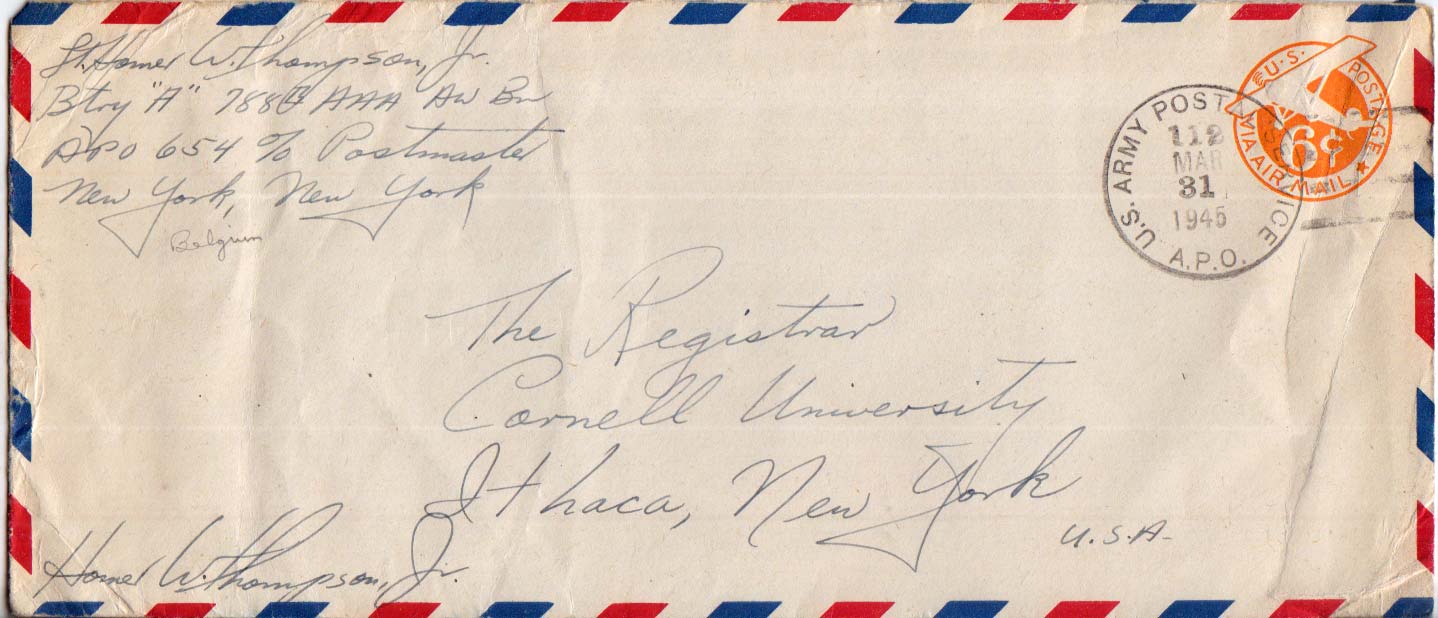 Lt. Homer W. Thompson, Jr.
Btry "A" 788th AAA AW Bn
APO 654 % Postmaster
New York, New York
Belgium
U.S. POSTAGE
6¢
VIA AIR MAIL
U.S. ARMY POSTAL SERVICE
112
MAR
31
1945
A.P.O.
The Registrar
Cornell University
Ithaca, New York
U.S.A.
Homer W. Thompson, Jr.